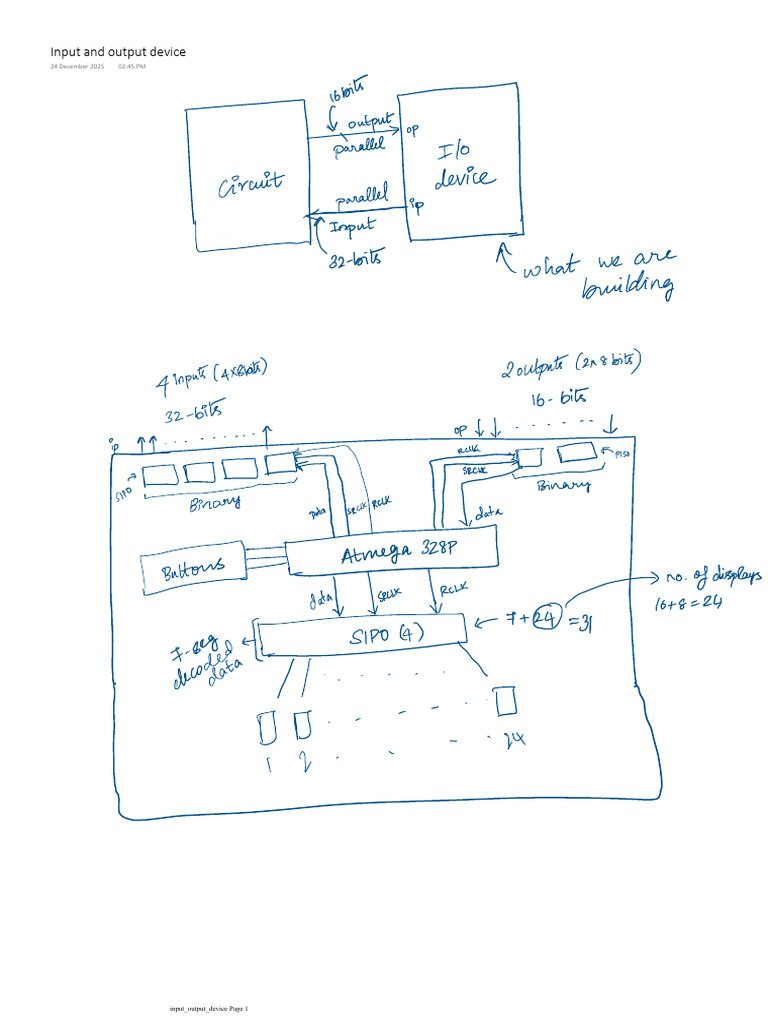 Input and output device
24 December 2025 02:45 PM
16 bits
output
op
parallel
Circuit
I/o
device
parallel
ip
Input
32-bits
what we are
building
4 inputs (4x8bits)
32-bits
2 outputs (2x8 bits)
16- bits
ip
op
SIPO
Binary
data
SRCLK
RCLK
RCLK
SRCLK
PISO
Binary
data
Buttons
Atmega 328P
data
SRCLK
RCLK
SIPO (4)
7+24=31
no. of displays
16+8=24
7-seg
decoded
data
1 2 24
input_output_device Page 1